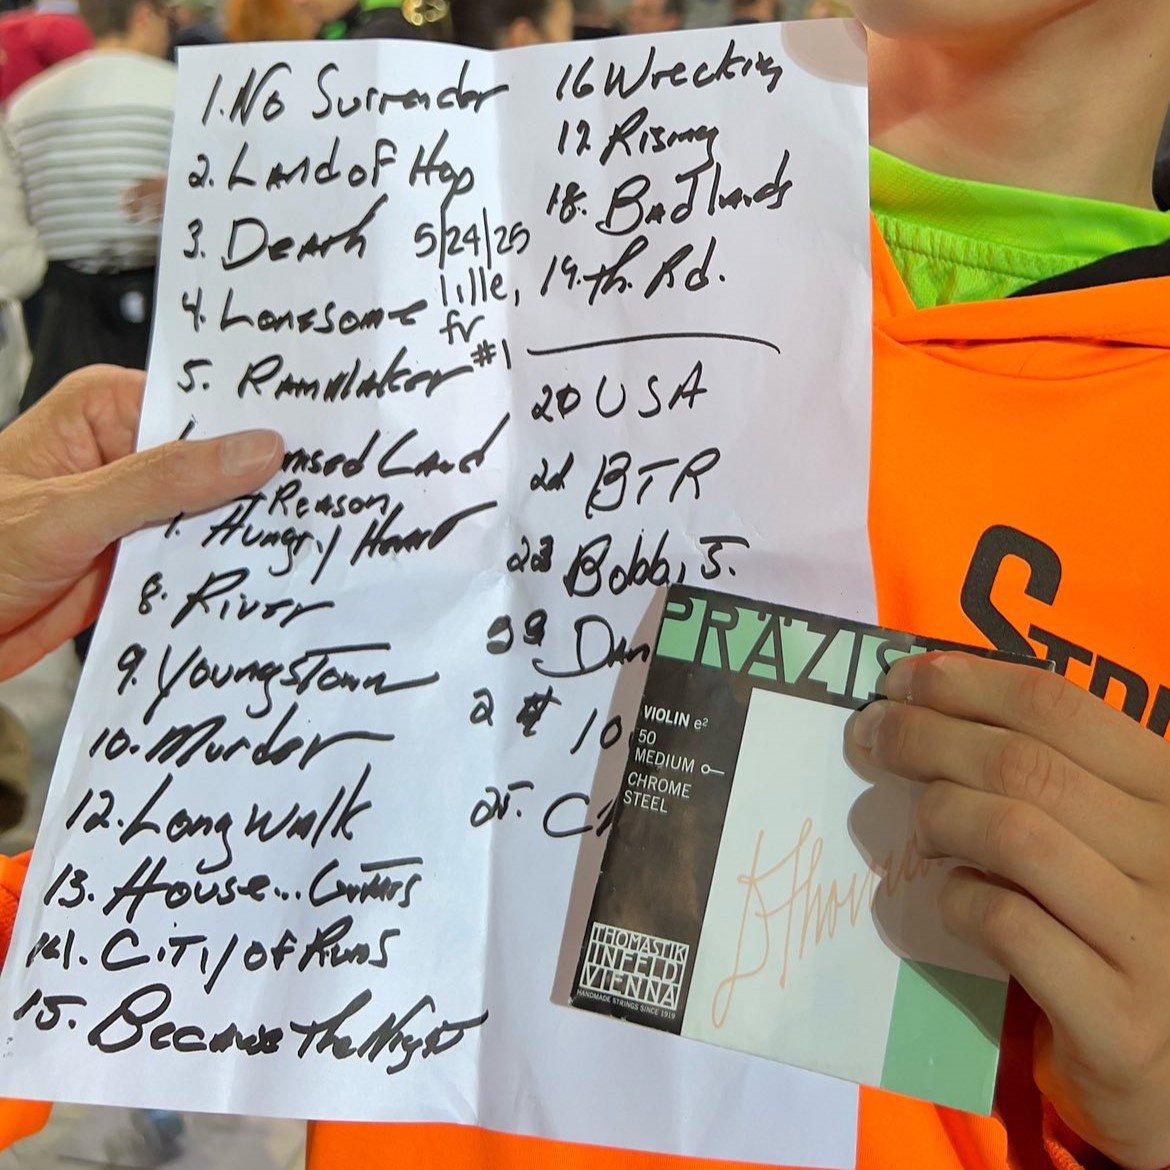 1. No Surrender
2. Land of Hop
3. Death
5/24/25
4. Lonesome
lille,
fr
#1
5. Rainmaker
mised Land
Reason
Hungry Heart
8. River
9. Youngstown
10. Murder
12. Long Walk
13. House...
14. City of Runs
15. Because The Night
16 Wrecking
17. Rising
18. Badlands
19. Th. Rd.
20 USA
BTR
Bobby J.
Dan
10
25. C
PRÄZIS
VIOLIN e²
50
MEDIUM
CHROME
STEEL
THOMASTIK
INFELD
VIENNA
HANDMADE STRINGS SINCE 1919